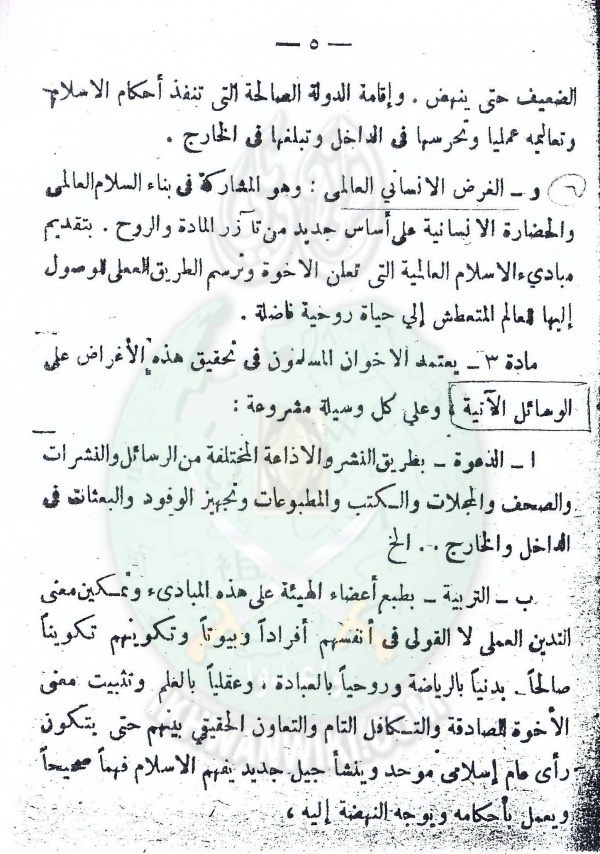 — ٥ —
الضعيف حتى ينهض . وإقامة الدولة الصالحة التى تنفذ أحكام الاسلام
وتعاليمه عمليا وتحرسها فى الداخل وتبلغها فى الخارج .
٦ و ـ الغرض الانسانى العالمى : وهو المشاركة فى بناء السلام العالمى
والحضارة الانسانية على أساس جديد من تآزر المادة والروح . بتقديم
مبادىء الاسلام العالمية التى تعلن الاخوة وترسم الطريق العملى للوصول
إليها للعالم المتعطش إلي حياة روحية فاضلة .
مادة ٣ ـ يعتمد الاخوان المسلمون فى تحقيق هذه الأغراض على
الوسائل الآتية ، وعلي كل وسيلة مشروعة :
ا ـ الدعوة ـ بطريق النشر والاذاعة المختلفة من الرسائل والنشرات
والصحف والمجلات والكتب والمطبوعات وتجهيز الوفود والبعثات فى
الداخل والخارج . . الخ
ب ـ التربية ـ بطبع أعضاء الهيئة على هذه المبادىء وتمكين معنى
التدين العملى لا القولى فى أنفسهم أفراداً وبيوتاً وتكوينهم تكويناً
صالحاً ـ بدنياً بالرياضة وروحياً بالعبادة ، وعقلياً بالعلم وتثبيت معنى
الأخوة الصادقة والتكافل التام والتعاون الحقيقي بينهم حتى يتكون
رأى عام إسلامى موحد وينشأ جيل جديد يفهم الاسلام فهماً صحيحاً
ويعمل بأحكامه ويوجه النهضة إليه ،
IKHWANWIKI.COM